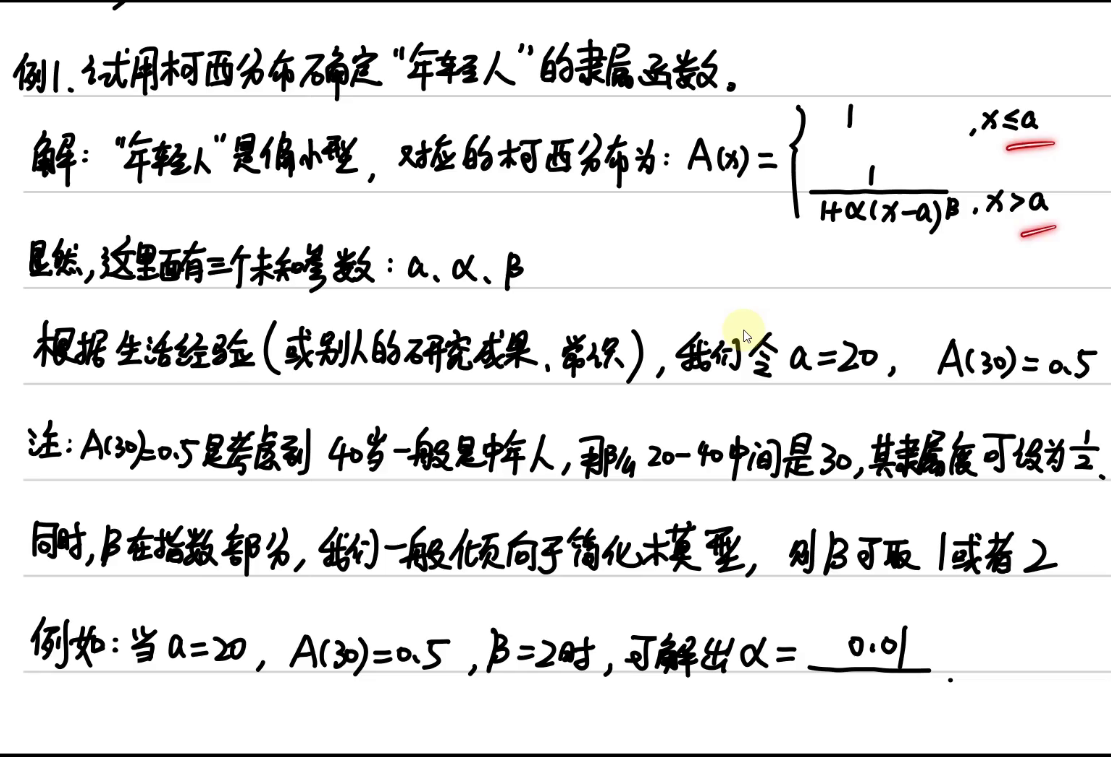 例1.试用柯西分布确定“年轻人”的隶属函数。
解：“年轻人”是偏小型，对应的柯西分布为：A(x)={ 1 ,x≤a
1/(1+α(x-a)^β) ,x>a
显然,这里面有三个未知参数：a、α、β
根据生活经验(或别人的研究成果、常识)，我们令 a=20， A(30)=0.5
注：A(30)=0.5是考虑到 40岁一般是中年人，那么 20-40中间是30,其隶属度可设为1/2.
同时,β在指数部分，我们一般倾向于简化模型，则β可取 1或者2
例如：当a=20，A(30)=0.5，β=2时，可解出α= 0.01 .